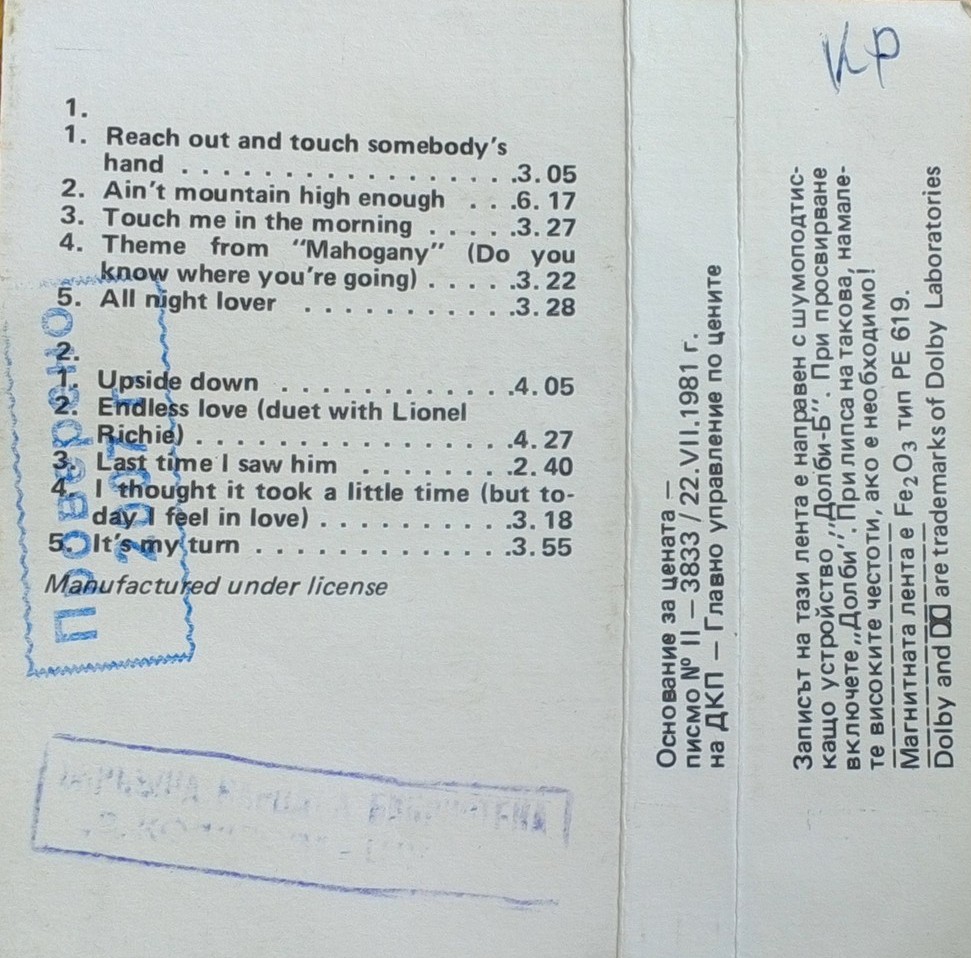 1.
1. Reach out and touch somebody's
hand . . . . . . . . . . . . . . . . . .3. 05
2. Ain't mountain high enough . . .6. 17
3. Touch me in the morning . . . . .3. 27
4. Theme from "Mahogany" (Do you
know where you're going) . . . . .3. 22
5. All night lover . . . . . . . . . . . .3. 28
2.
1. Upside down . . . . . . . . . . . . .4. 05
2. Endless love (duet with Lionel
Richie) . . . . . . . . . . . . . . . . .4. 27
3. Last time I saw him . . . . . . . .2. 40
4. I thought it took a little time (but to-
day I feel in love) . . . . . . . . . .3. 18
5. It's my turn . . . . . . . . . . . . . .3. 55
Manufactured under license
Проверено
2007 г.
Основание за цената —
писмо № II — 3833 / 22.VII.1981 г.
на ДКП — Главно управление по цените
КР
Записът на тази лента е направен с шумоподтис-
кащо устройство „Долби-Б". При просвирване
включете „Долби". При липса на такова, намале-
те високите честоти, ако е необходимо!
Магнитната лента е Fe2O3 тип PE 619.
Dolby and are trademarks of Dolby Laboratories